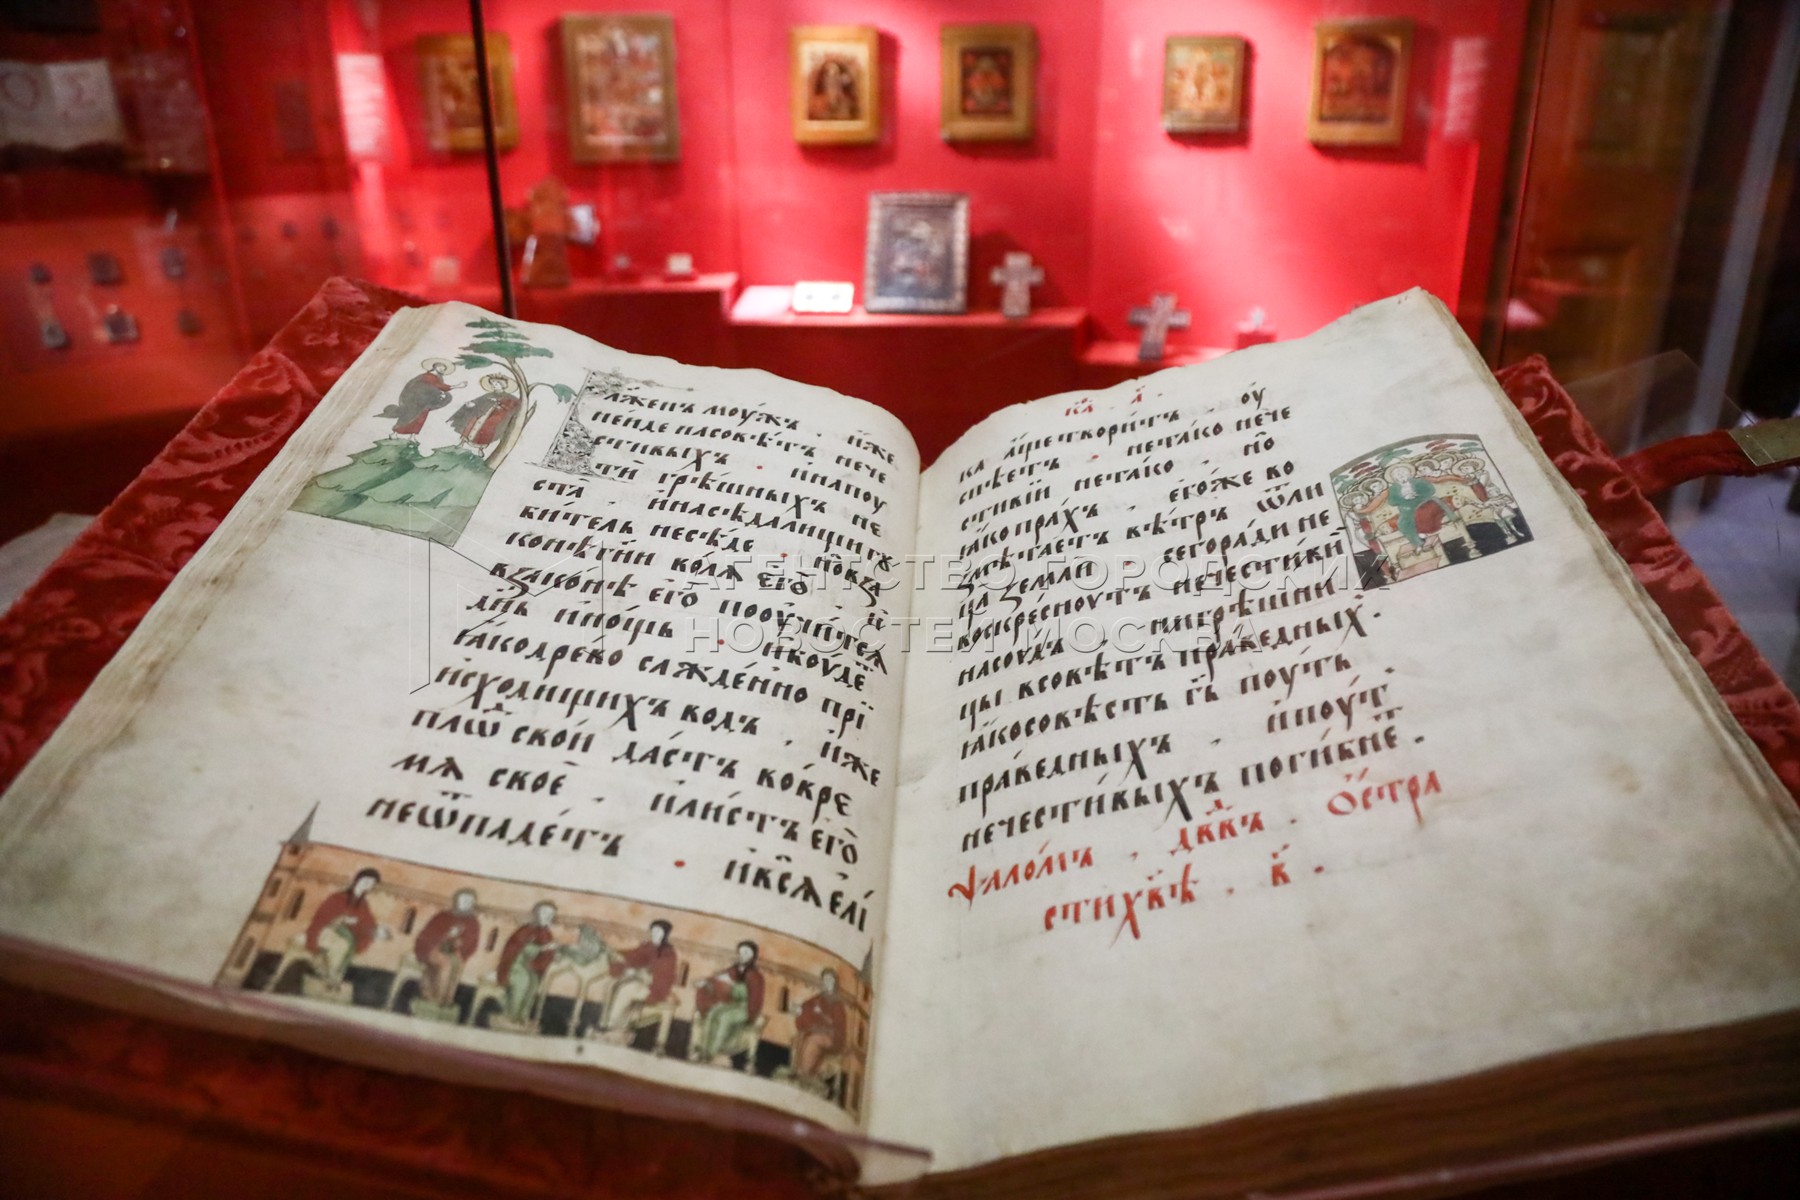 Бл҃женъ моу́жъ . и́же
не́иде насовѣ́тъ нече
стивыхъ . ина́поу
ти́ грѣ́шныхъ не
ста̀ . и́насѣдалищи гу
би́тель несѣ́де . но̑ в꙽за
конѣгн҃и во́лѧ е҆го̀
в꙽зако́нѣ е҆го̀ поѹчи́тсѧ
дн҃ь и҆но́щь . и҆боу́де҇
ꙗ҆кодре́во сажде́нно при
и҆сходищихъ водъ . и҆же
пло҇ свой да́стъ во́вре
мѧ своѐ . и҆ли́стъ е҆го̀
неѿпаде́тъ . и҆всѧ ели́
к҃а . а҃ .
ка а҆ще твори́тъ . оу
спѣ́етъ . нета́ко нече
стивїи нета́ко . но̑
ꙗ҆ко пра́хъ . е҆го́же во
змѣта́етъ вѣ́тръ ѿ ли
ца земли . сего ра́ди не
воскре́снутъ нечести́вїи
насоу́дъ . нигрѣ́шни
цы всовѣ́тъ пра́ведныхъ .
ꙗ҆ковѣсть гь҃ поу́ть
пра́ведныхъ . и҆поу́т
нечести́выхъ поги́бне҇ .
ѱало́мъ . дв҃дъ . О҆стра
стихвѣ . в҃ .
АГЕНТСТВО ГОРОДСКИХ
НОВОСТЕЙ МОСКВА